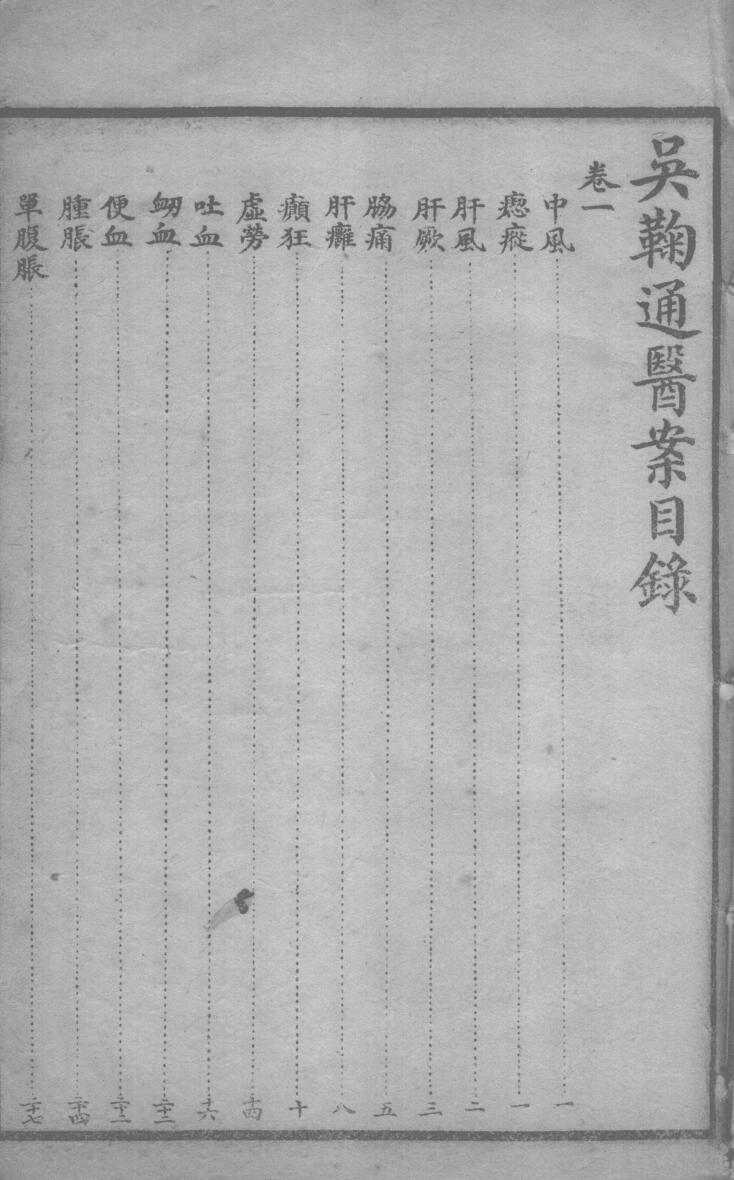 吳鞠通醫案目錄
卷一
中風 一
瘛瘲 一
肝風 二
肝厥 三
脇痛 五
肝癰 八
癲狂 十
虛勞 十四
吐血 十六
衄血 二十二
便血 二十二
腫脹 二十四
單腹脹 二十七